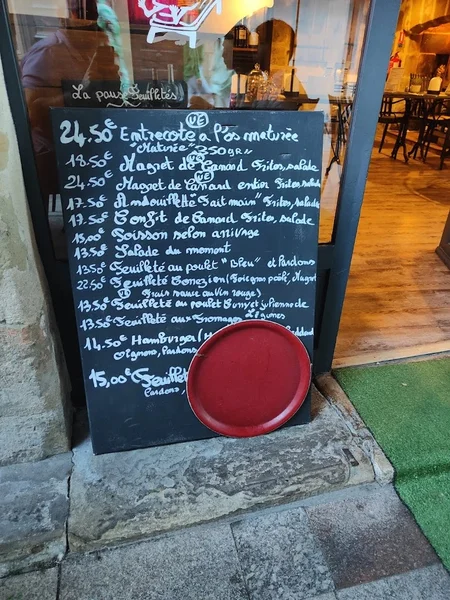 La pause Feuilletés
UE
24.50€ Entrecote a l'os maturée
"Maturée" 350gr
18.50€ Magret de Canard Frites, salade
UE
24.50€ Magret de Canard entier Frites salade
17.50€ Andouillette "Fait main" Frites, salade
17.50€ Confit de Canard Frites, salade
15,00€ Poisson selon arrivage
13.50€ Salade du moment
13.50€ Feuilleté au poulet "Bleu" et lardons
22.50€ Feuilleté (Foie gras poêlé, Magret
sauce au vin rouge)
13,50€ Feuilleté au poulet Curry et julienne de
Légumes
13.50€ Feuilleté aux Fromages
14.50€ Hamburger (H
oignons, lardons
15,00€ Feuillet
lardons,